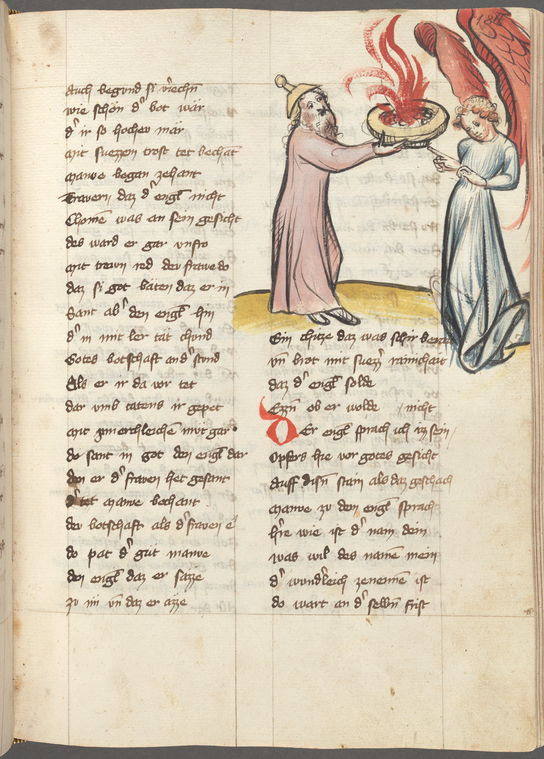 184
Auch begund si viechn
wie schon d' bot wär
d' ir so hochew mär
mit suezzen trost tet bechāt
manwe began zehant
Travern daz d' engl nicht
Chome was an sein gesicht
des ward er gar unfro
mit trewn red der frawe do
daz si got baten daz er in
Sant ab' den engl hin
d' in mit ler tät chund
Gotes botschaft and' stund
Als er in da vor tet
dar umb batens ir gepet
mit inerchleichē mvt gar
do sant in got den engl dar
den er d' frawen het gesant
d' tet manwe bechant
der botschaft als d' frawen e
do pat d' gut manwe
den engl daz er sazze
zu im vn daz er azze
Ein chitze daz was schir
vn brot mit suezz
daz d' engl solde
Ezzn ob er wolde nicht
Der engl sprach ich izz sein
Opfers hie vor gotes gesicht
Auff disn stain als daz geschach
manwe zu dem engl sprach
h're wie ist d' nam dein
was wil des namē mein
d' wundleich zenenne ist
do wart an d' selbn frist